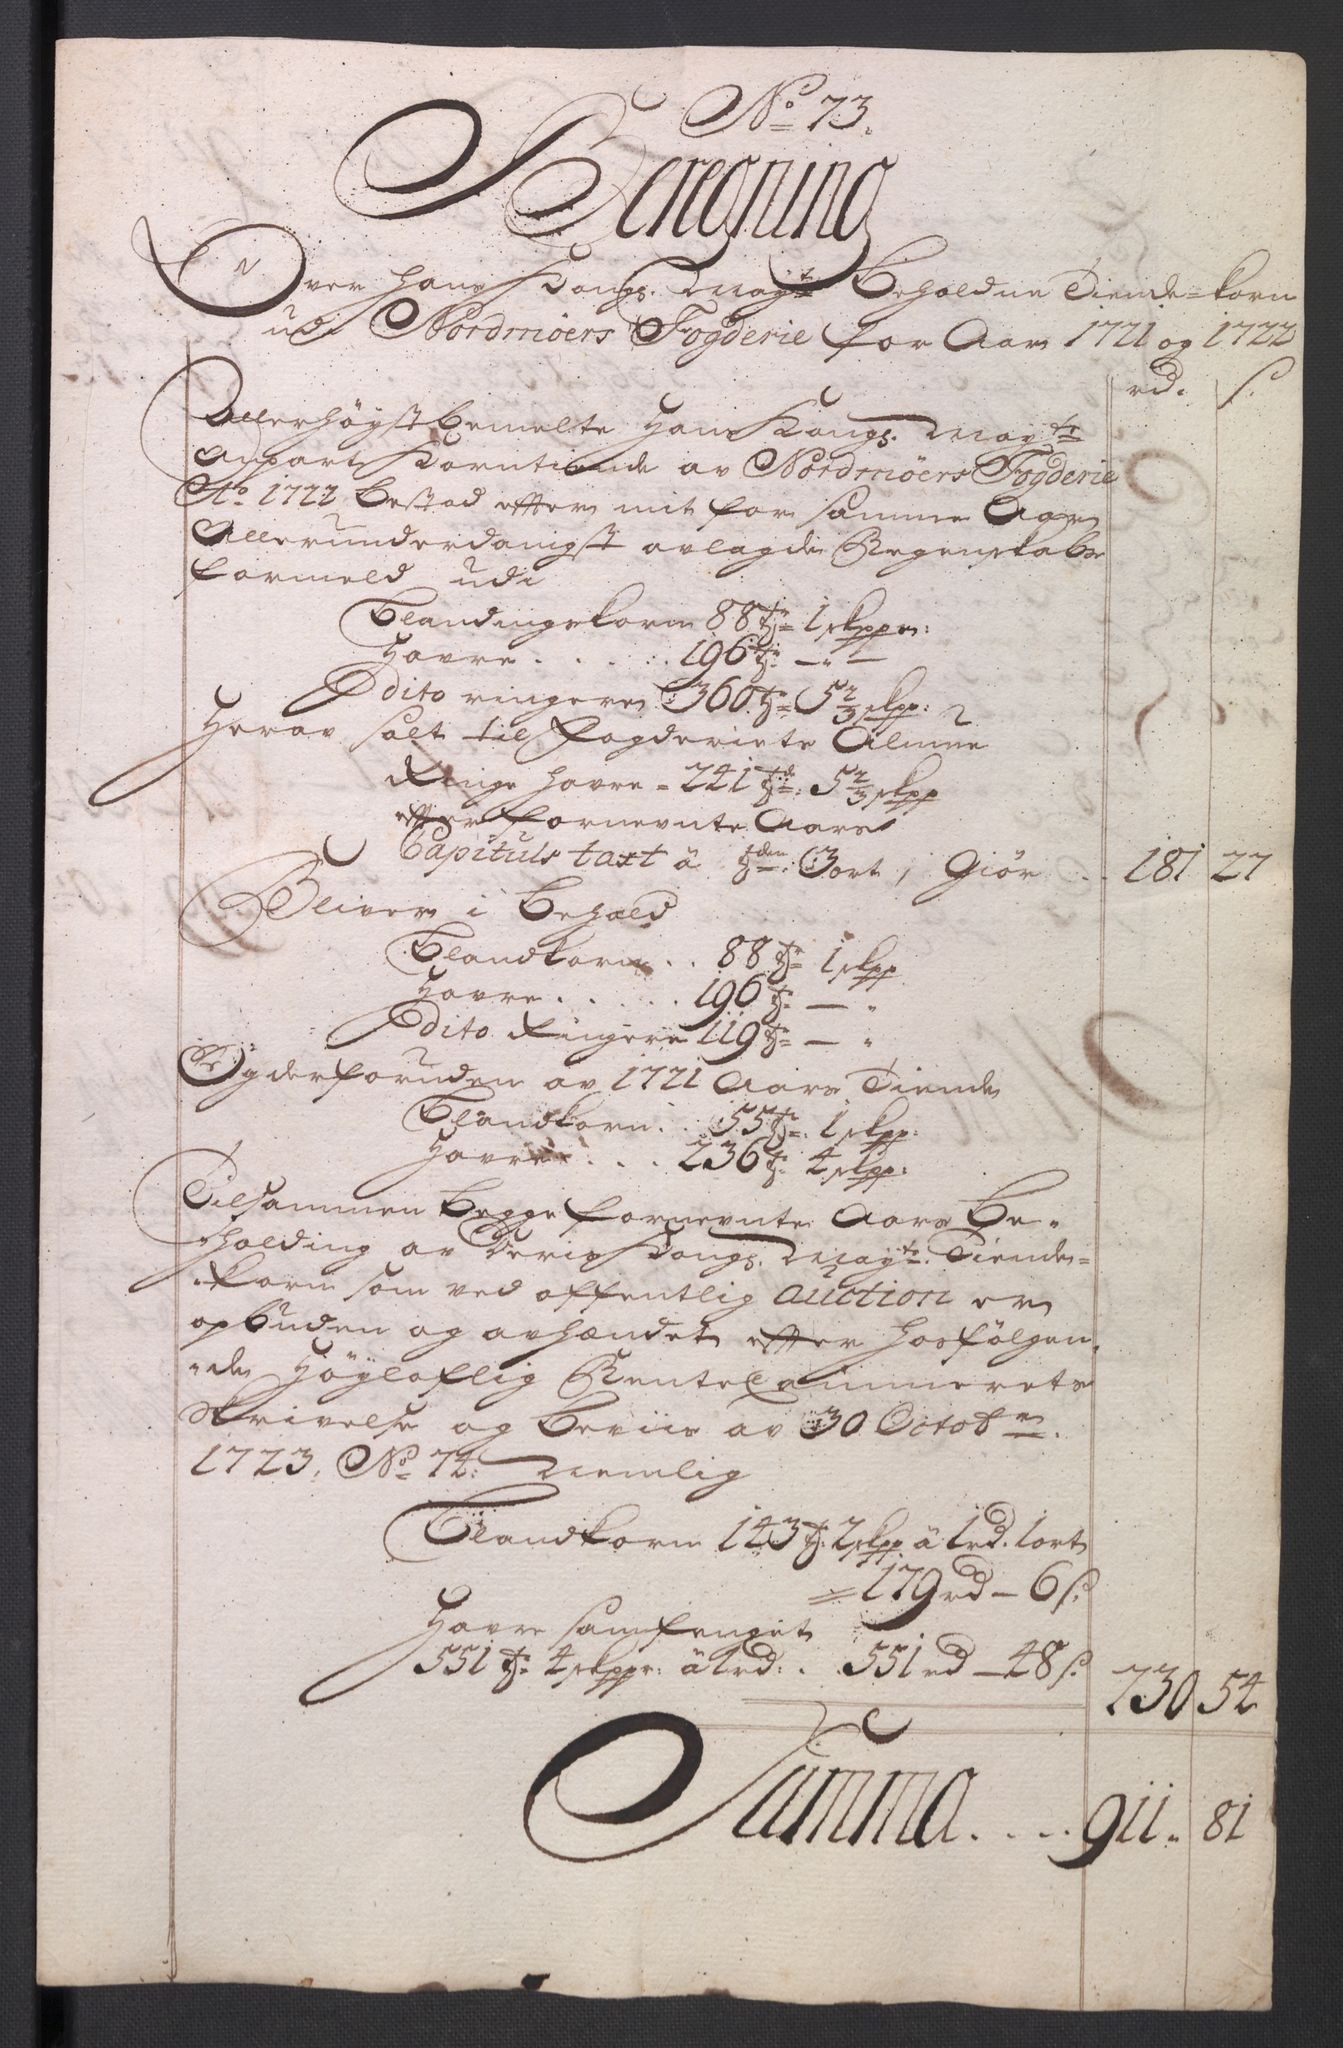 No 73.
Beregning
Over Hans Kongl. Mayts Beholdne Tiende-korn
udi Nordmöers Fogderie for Aar 1721 og 1722
rd. s.
Allerhöystbemelte Hans Kongl. Mayts
Anpart Korntiende av Nordmöers Fogderie
Ao. 1722 bestod efter mit for samme Aar
Allerunderdanigst avlagde Regenskabs
formeld udi
Blandingskorn 88 tr 1 skpper:
Havre . . . . . 196 tr — " —
Dito ringere 360. tr 5 2/3 skpp:
Herav salt til Fogderiets Almue
Ringe havre - 241 tdr: 5 2/3 skpp
efter fornevnte Aars
Capituls taxt á tden: 3 ort, Giör . . 181 27
Bliver i behold
Blandkorn . . 88 tr 1 skpp
Havre . . . . . 196 tr — "
Dito Ringere 119 tr — "
Og derforuden av 1721 Aars Tiende
Blandkorn . . 55 tr. 1 skpp:
Havre . . . . 236 tr. 4 skpp:
Tilsammen begge fornevnte Aars Be-
holding av Deris Kongl. Mayts. Tiende-
korn som ved offentlig Auction er
opbuden og avhændet efter hosfölgen-
de Höyloflig RenteCammerets
Skrivelse og Beviis av 30 Octobr.
1723, No 74: Nemlig
Blandkorn 143 tr. 2 skpp á 1 rd. 1 ort
= 179 rd — 6 s.
Havre samfenget
551 tr. 4 skppr: á 1 rd: . 551 rd — 48 s. 730 54
Summa . . . . 911. 81